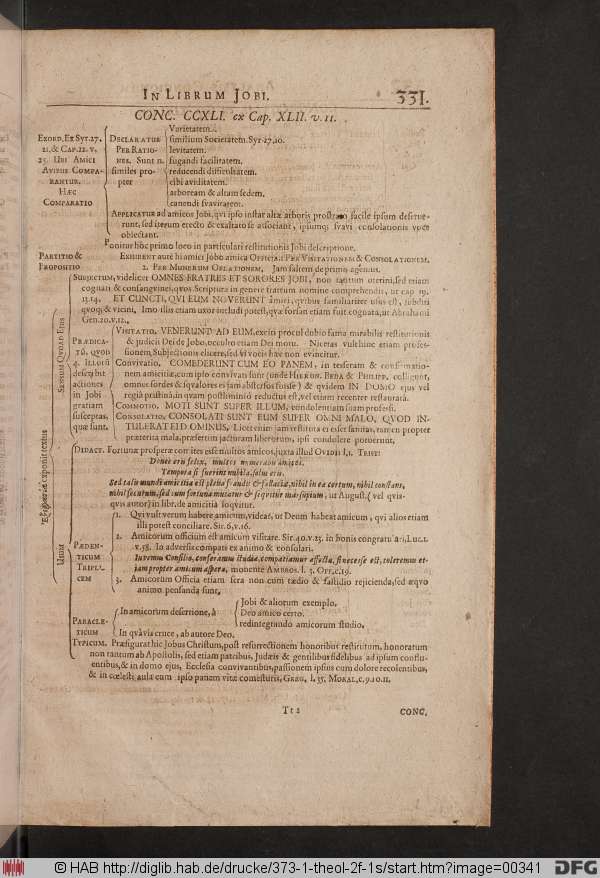 IN LIBRUM JOBI. 331.
CONC. CCXLI. ex Cap. XLII. v. 11.
Varietatem.
EXORD. Ex Syr. 27. DECLARATUR similium Societatem. Syr. 27, 10.
21. & CAP. 12. v. PER RATIO- levitatem.
25. UBI AMICI NES. Sunt n. fugandi facilitatem.
AVIBUS COMPA- similes pro- reducendi difficultatem.
RANTUR. pter cibi aviditatem.
HÆC arboream & altam sedem.
COMPARATIO canendi svavitatem.
APPLICATUR ad amicos Jobi, qui ipso instar altæ arboris prostrato facile ipsum deserue-
runt, sed iterum erecto & exaltato se associant, ipsumq; svavi consolationis voce
oblectant.
Ponitur hoc primo loco in particulari restitutionis Jobi descriptione.
PARTITIO & EXHIBENT autem hi amici Jobo amica OFFICIA: PER VISITATIONEM & CONSOLATIONEM.
PROPOSITIO 2. PER MUNERUM OBLATIONEM. Jam saltem de primo agemus.
SUBJECTUM, videlicet OMNES FRATRES ET SORORES JOBI, non tantum uterini, sed etiam
cognati & consangvinei, quos Scriptura in genere fratrum nomine comprehendit, ut cap. 19.
13. 14. ET CUNCTI, QVI EUM NOVERUNT amici, quibus familiariter usus est, subditi
quoq; & vicini. Imo illis etiam uxor includi potest, quæ forsan etiam fuit cognata, ut Abrahami
Gen. 20. v. 12.
SENSUM QVOAD EJUS
VISITATIO. VENERUNT AD EUM, exciti procul dubio fama mirabilis restitutionis
PRÆDICA- & judicii Dei de Jobo, occulto etiam Dei motu. Niceras vulshinc etiam profes-
TŪ, QVOD sionem, Subjectionis elicere, sed vi vocis hæc non evincitur.
4. ILLORŪ Convivatio. COMEDERUNT CUM EO PANEM, in tesseram & confirmatio-
describit nem amicitiæ, cum ipso convivati sunt (unde HIERON. BEDA & PHILIPP. colligunt,
actiones omnes sordes & sqvalores ei jam abstersos fuisse) & qvidem IN DOMO ejus vel
in Jobi regia pristina, in qvam postliminio reductus est, vel etiam recenter restaurata.
gratiam COMMOTIO. MOTI SUNT SUPER ILLUM, condolentiam suam professi.
susceptas, CONSOLATIO, CONSOLATI SUNT EUM SUPER OMNI MALO, QVOD IN-
quæ sunt. TULERAT EI DOMINUS, Licet enim jam restituta ei esset sanitas, tamen propter
præterita mala, præsertim jacturam liberorum, ipsi condolere potuerunt.
DIDACT. Fortunæ prosperæ comites esse multos amicos, juxta illud OVIDII l. 1. Trist:
Donec eris felix, multos numerabis amicos.
Tempora si fuerint nubila, solus eris.
Sed talis mundi amicitia est plena fraudis & fallacia, nihil in ea certum, nihil constans,
nihil securum, sed cum fortuna mutatur & seqvitur marsupium, ut August. (vel qvis-
qvis autor) in libr. de amicitia loqvitur.
USUM
1. Qui vult verum habere amicum, videat, ut Deum habeat amicum, qui alios etiam
illi potest conciliare. Sir. 6, v. 16.
PÆDEN- 2. Amicorum officium est amicum visitare. Sir. 40. v. 23. in bonis congratulari, LUC. 1.
TICUM v. 58. In adversis compati ex animo & consolari.
TRIPLI- Iuvemus Consilio, conferamus studia, compatiamur affectu, si necesse est, toleremus et-
CEM iam propter amicum aspera, monente AMBROS. l. 3. Off. c. 19.
3. Amicorum Officia etiam sera non cum tædio & fastidio rejicienda, sed æqvo
animo pensanda sunt.
In amicorum desertione, à Jobi & aliorum exemplo.
PARACLE- Deo amico certo.
TICUM redintegrando amicorum studio.
In qvavis cruce, ab autore Deo.
TYPICUM. Præfigurat hic Jobus Christum, post resurrectionem honoribus restitutum, honoratum
non tantum ab Apostolis, sed etiam patribus, Judæis & gentilibus fidelibus ad ipsum conflu-
entibus, & in domo ejus, Ecclesia convivantibus, passionem ipsius cum dolore recolentibus,
& in cœlesti aula cum ipso panem vitæ comesturis, GREG. l. 35. MORAL. c. 9. 10. 11.
Tt 2 CONC.
© HAB http://diglib.hab.de/drucke/373-1-theol-2f-1s/start.htm?image=00341
DFG